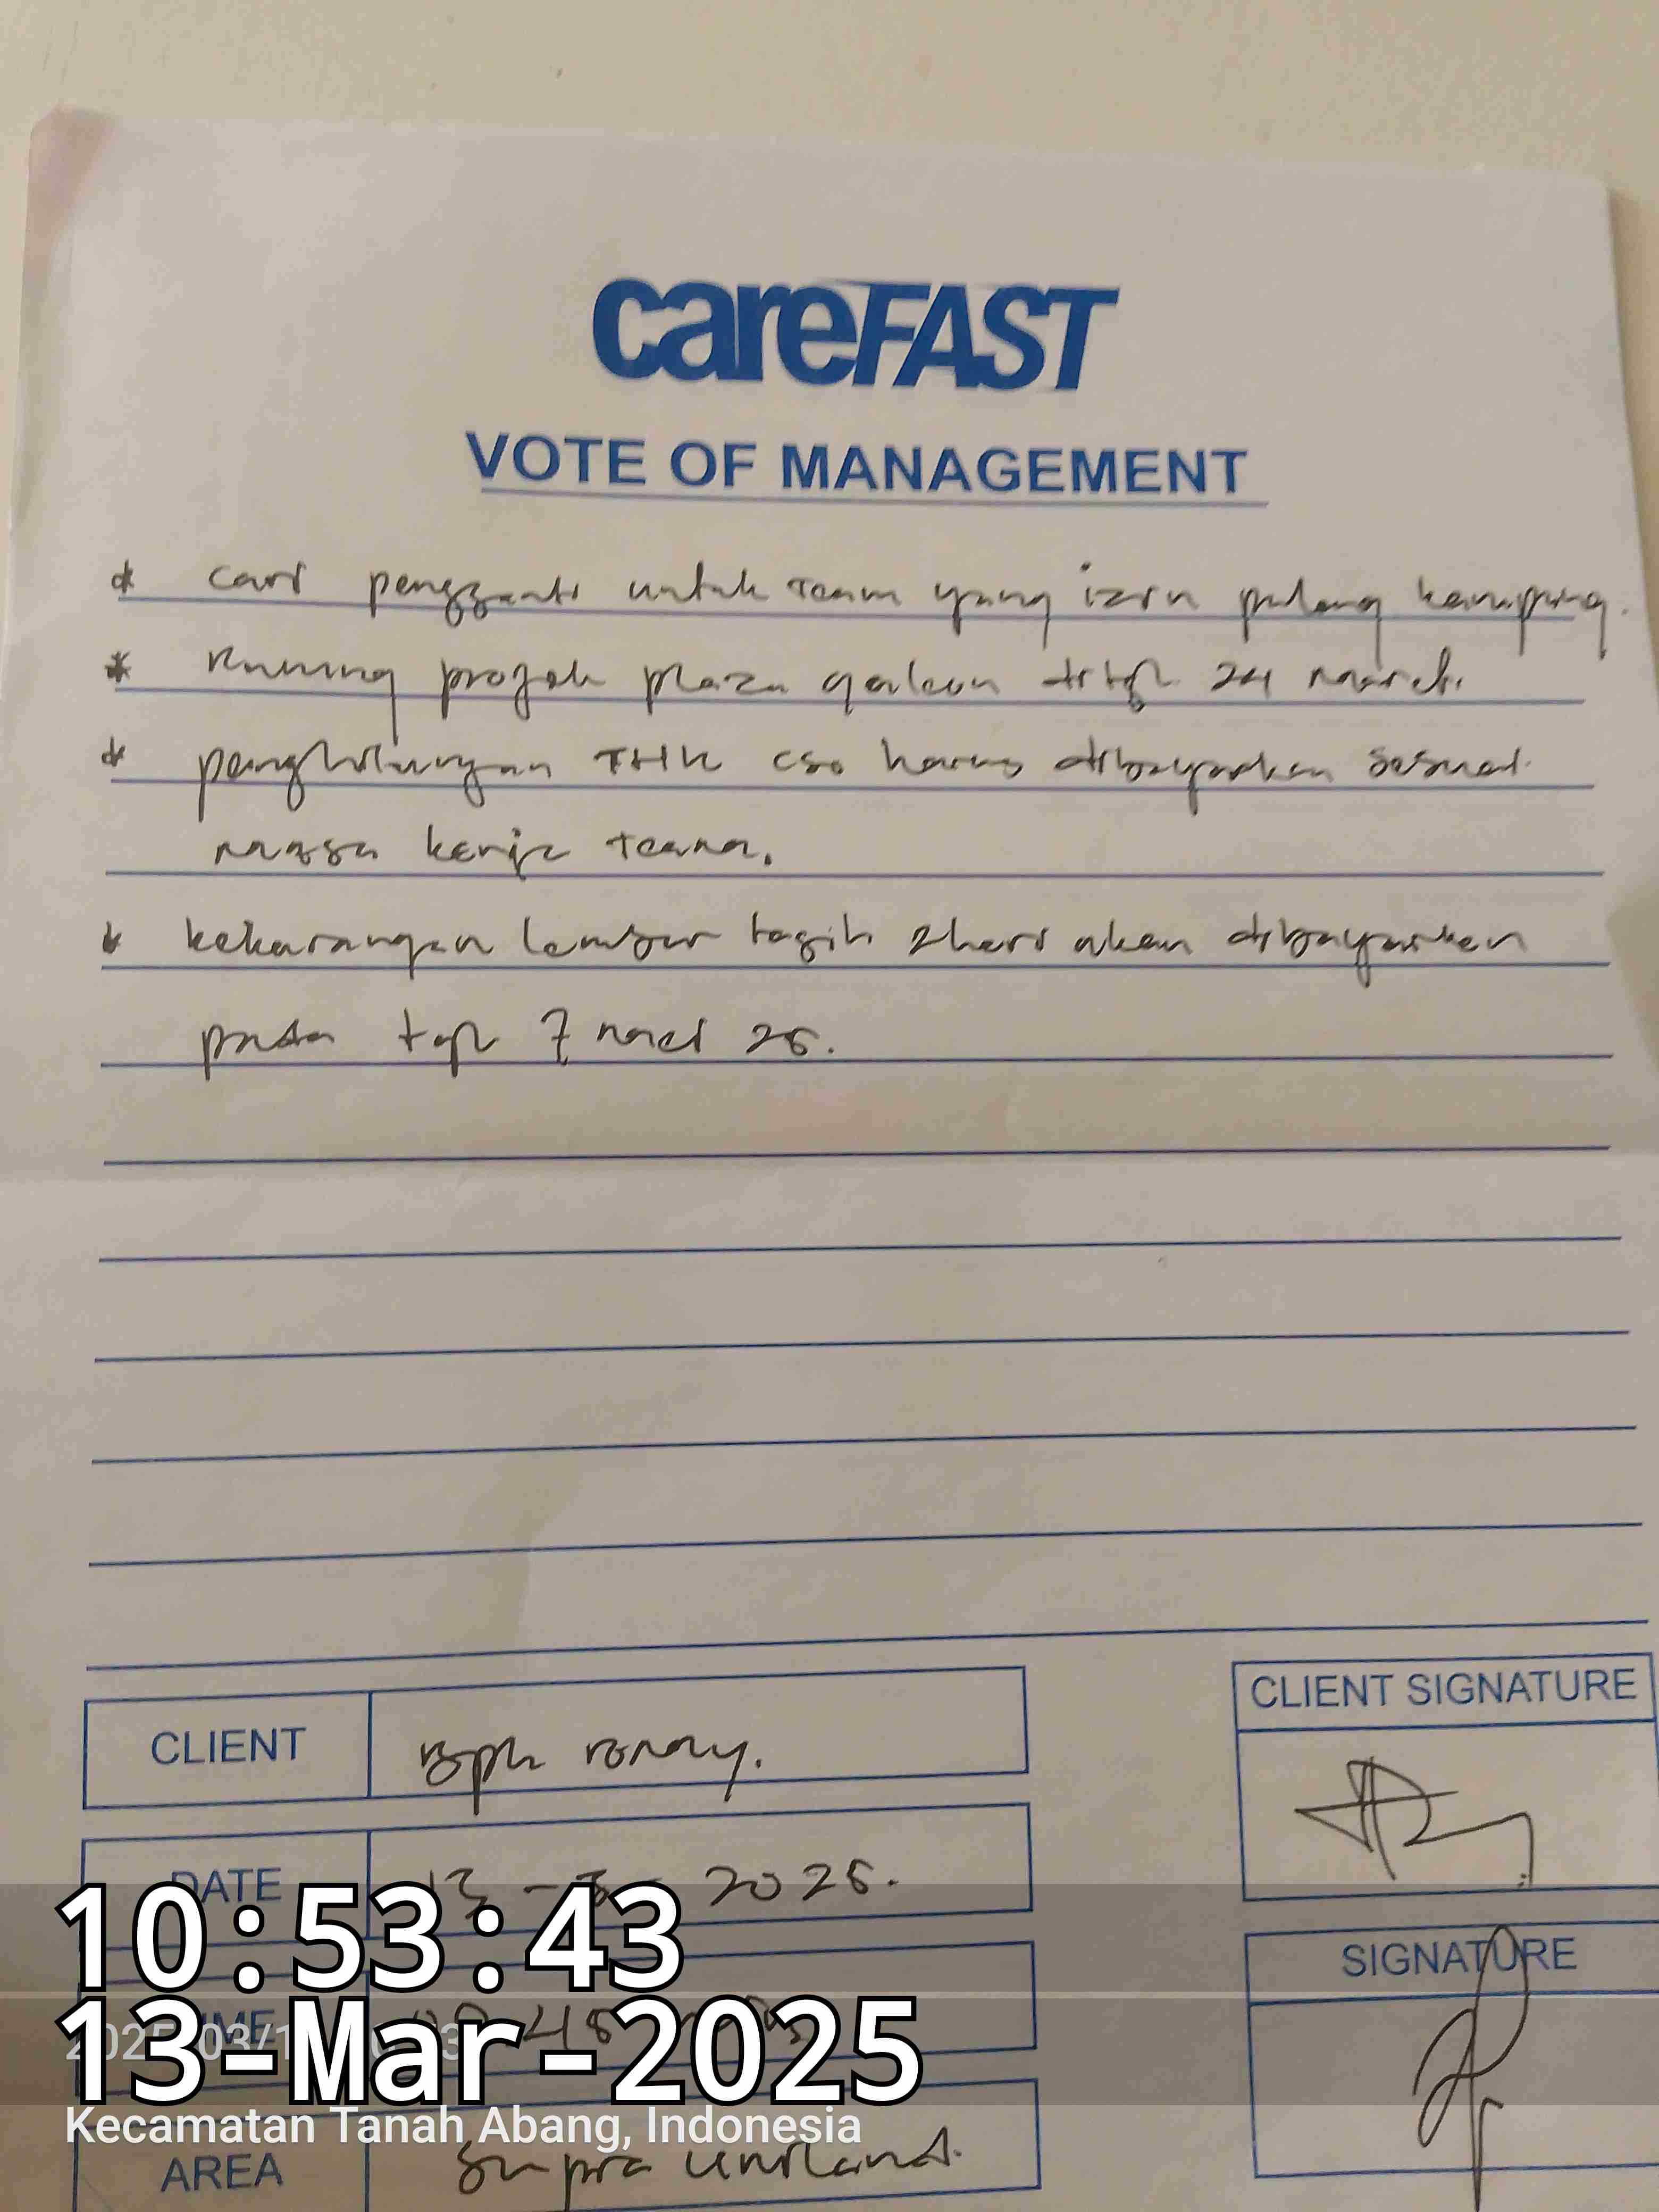 careFAST
VOTE OF MANAGEMENT
* cari pengganti untuk team yang izin pulang kampung.
* Running projek plaza di tgl 24 maret.
* penghitungan THR cso harus dibayarkan sesuai
massa kerja team.
* kekurangan lembur tagih 2 hari akan dibayarkan
pada tgl 7 maret 25.
CLIENT
Bpk ronny.
CLIENT SIGNATURE
DATE
13 - 3 - 2025.
10:53:43
SIGNATURE
13-Mar-2025
Kecamatan Tanah Abang, Indonesia
AREA
Supra Uniland.